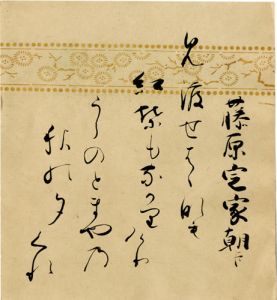 藤原定家朝臣
見渡せは花も
紅葉もなかりけり
うらのとまやの
秋の夕くれ